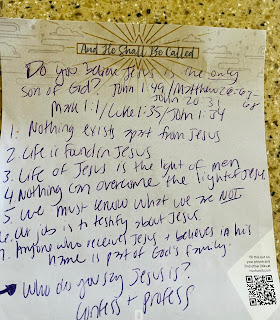 And He Shall Be Called
Do you believe Jesus is the only
son of God? John 1:49 / Matthew 26:67-68
John 20:31
Mark 1:1 / Luke 1:35 / John 1:34
1. Nothing exists apart from Jesus
2. Life is found in Jesus
3. Life of Jesus is the light of men
4. Nothing can overcome the light of Jesus
5. We must know what we are NOT
6. Our job is to testify about Jesus.
7. Anyone who receives Jesus + believes in his
name is part of God's family.
→ Who do you say Jesus is?
Confess + profess